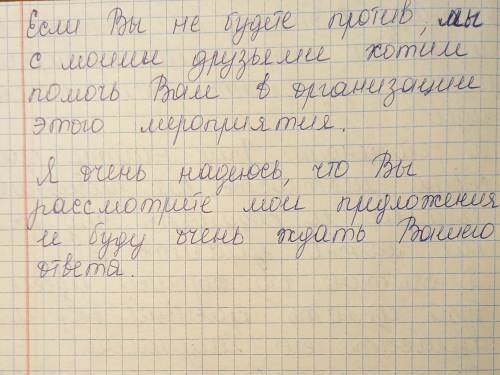 Если Вы не будете против, мы
с моими друзьями хотим
помочь Вам в организации
этого мероприятия.
Я очень надеюсь, что Вы
рассмотрите мои предложения
и буду очень ждать Вашего
ответа.